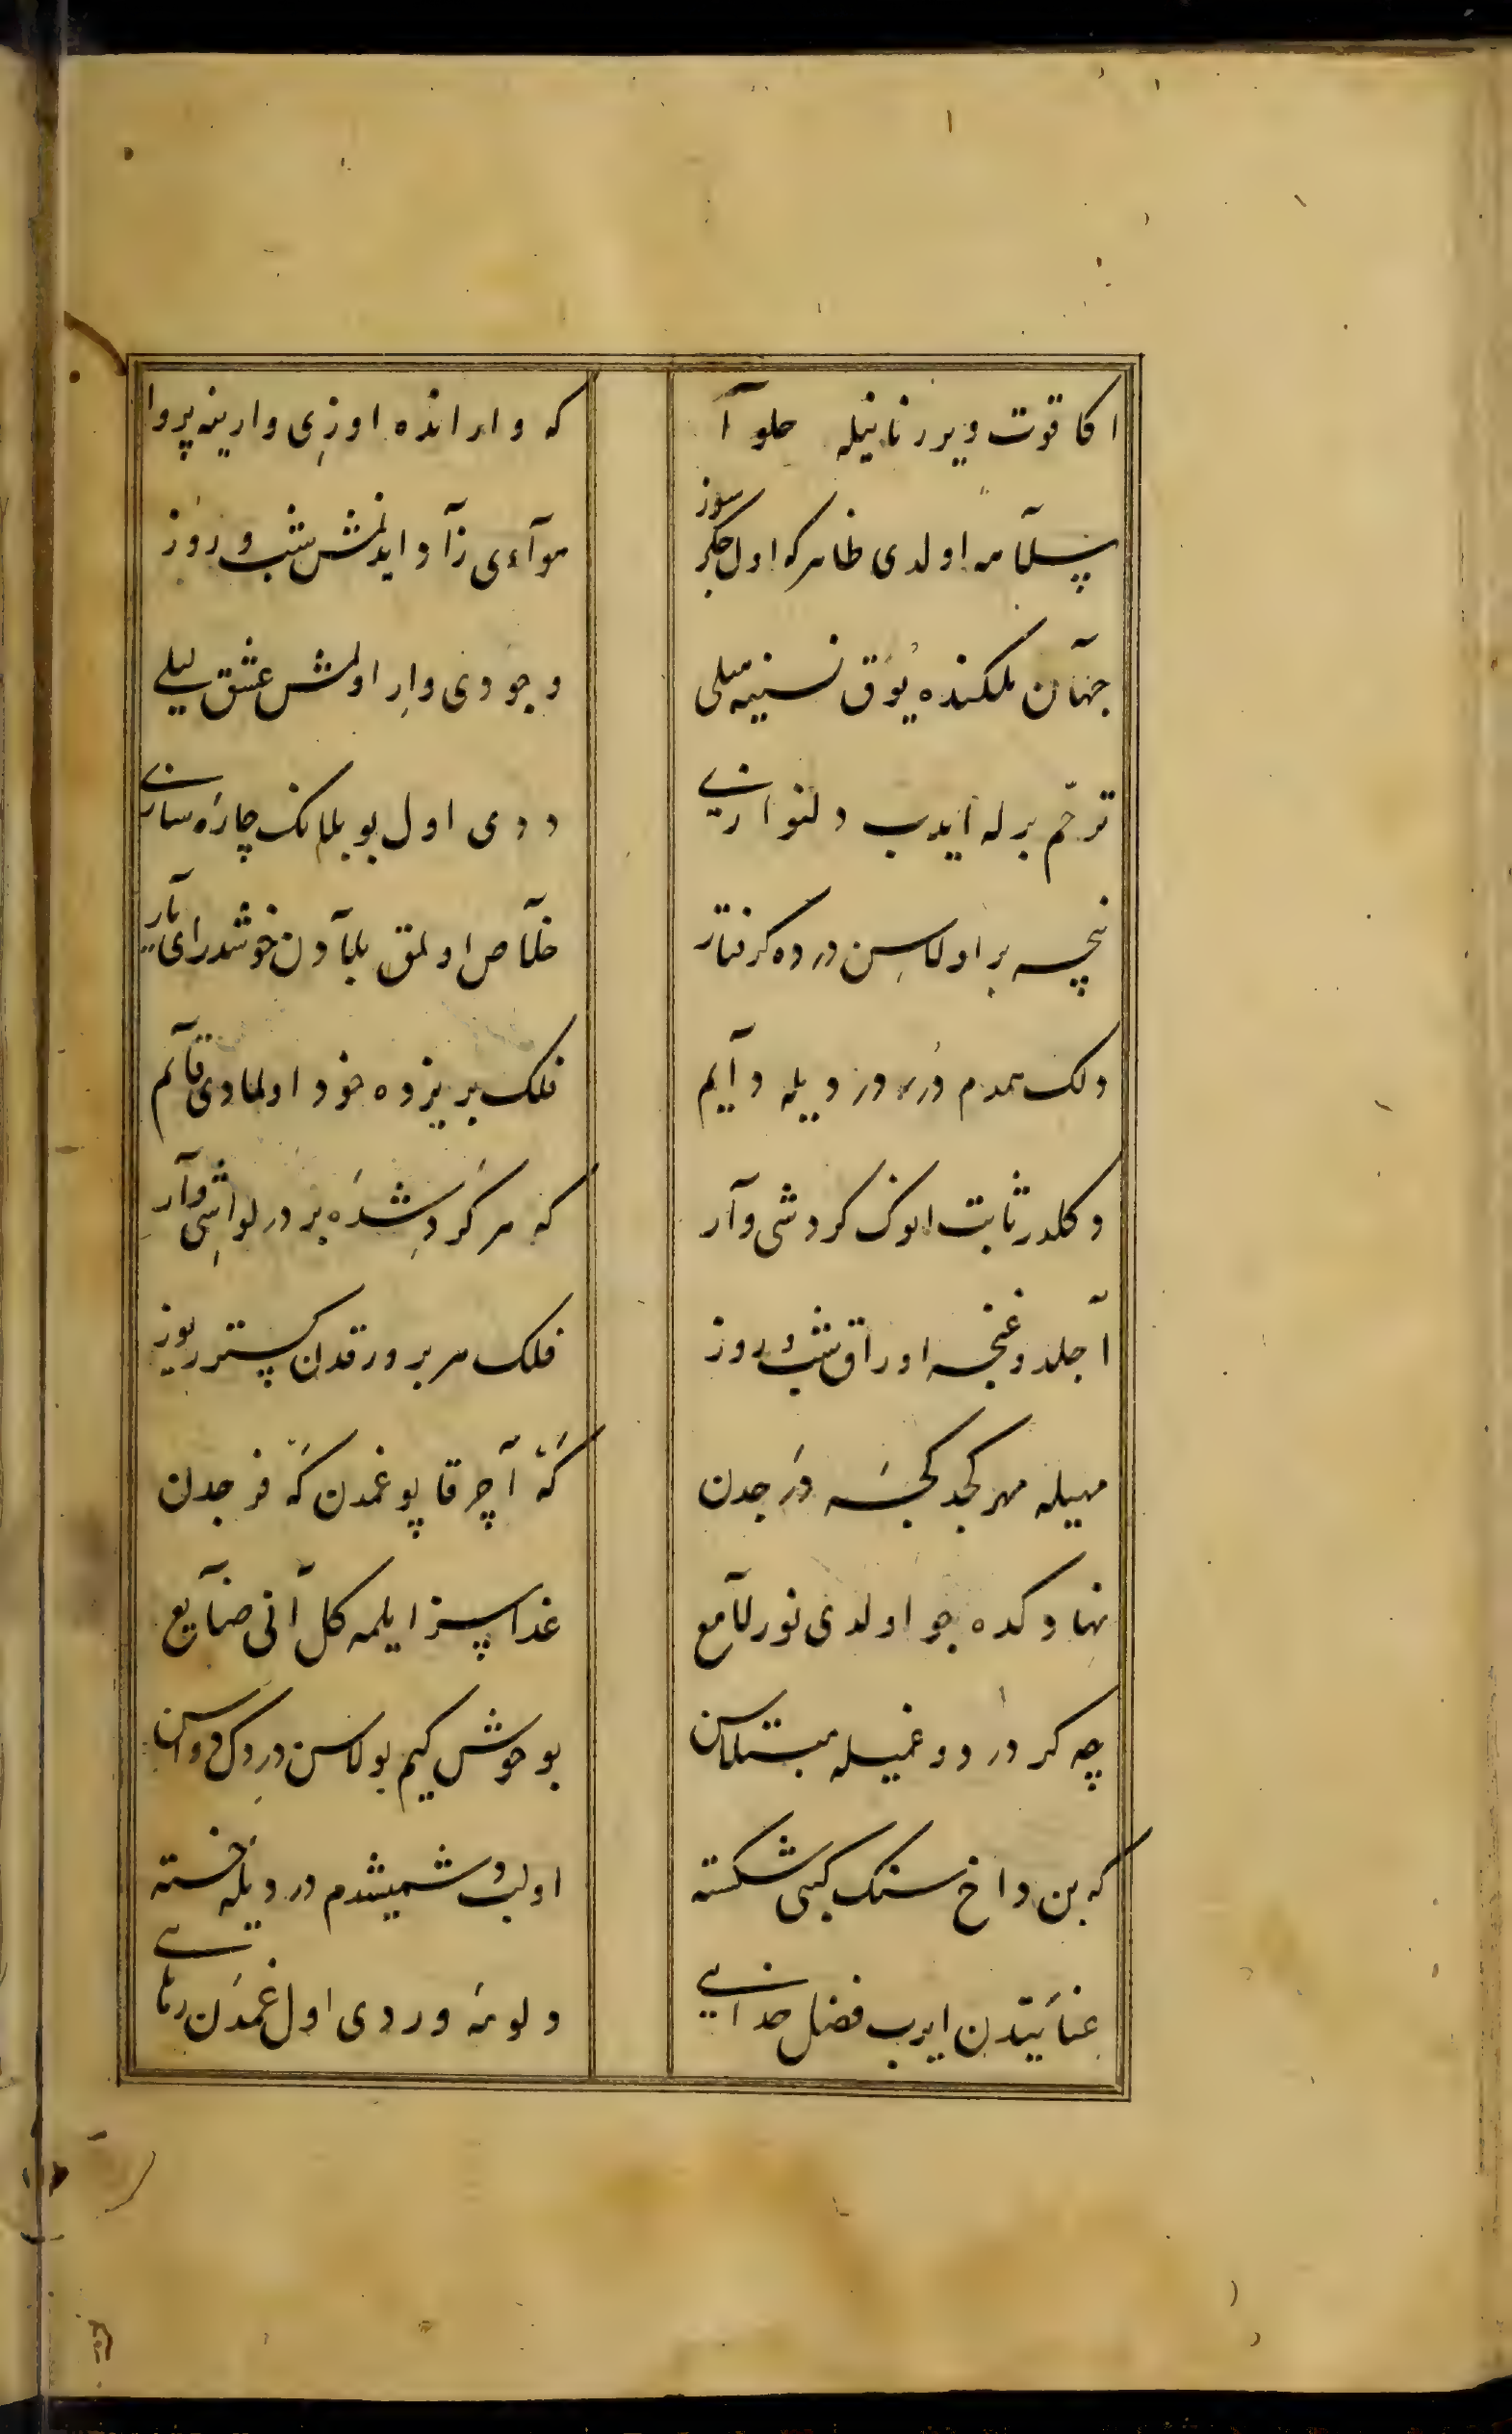 اكا قوت ویرر نانیله حلوآ که وار انده اوزِی وارینه پروا
پسلآمه اولدی ظاهر که اول جکر سوز موآءی زآد ایدنمش شب و روز
جهآن ملکنده یُوق نسنیه میلی وجودی وارِ اولمش عشق لیلے
ترحّم برله ایدب دلنوازے ددی اول بو بلانک چارَه سازے
نیچه بر اولاسِن درده کرفتار خلآص اولمق بلآدن خوشدر ای یآر
دلک همدم دُرر درد یله دآیم فلک بر یزده خود اولمادی قآیم
دکلدر ثابت انوک کردشی وآر که هر کردِشدَه بر درلو اشِی وآر
آجلدو غنجه اوراق شب و روز فلک هر بر ورقدن کستر ر یوز
مهیله مهر کجد کجَه دَرجدن كَهْ آچر قاپو غمدن كَه فرجدن
نهادکده چو اولدی نور لآمع غذاسز ایلمه کل آنی ضآیع
چه کر درد و غمیله مبتلاسن بو خوش کیم بولاسن دردِک دواسن
که بن داخ سنک کبی شکسته اولب دُشمیشدم درد یلَه خسته
عنایَتدن ایرب فضل خدایے دلومَه وردی اول غمدَن رهایے